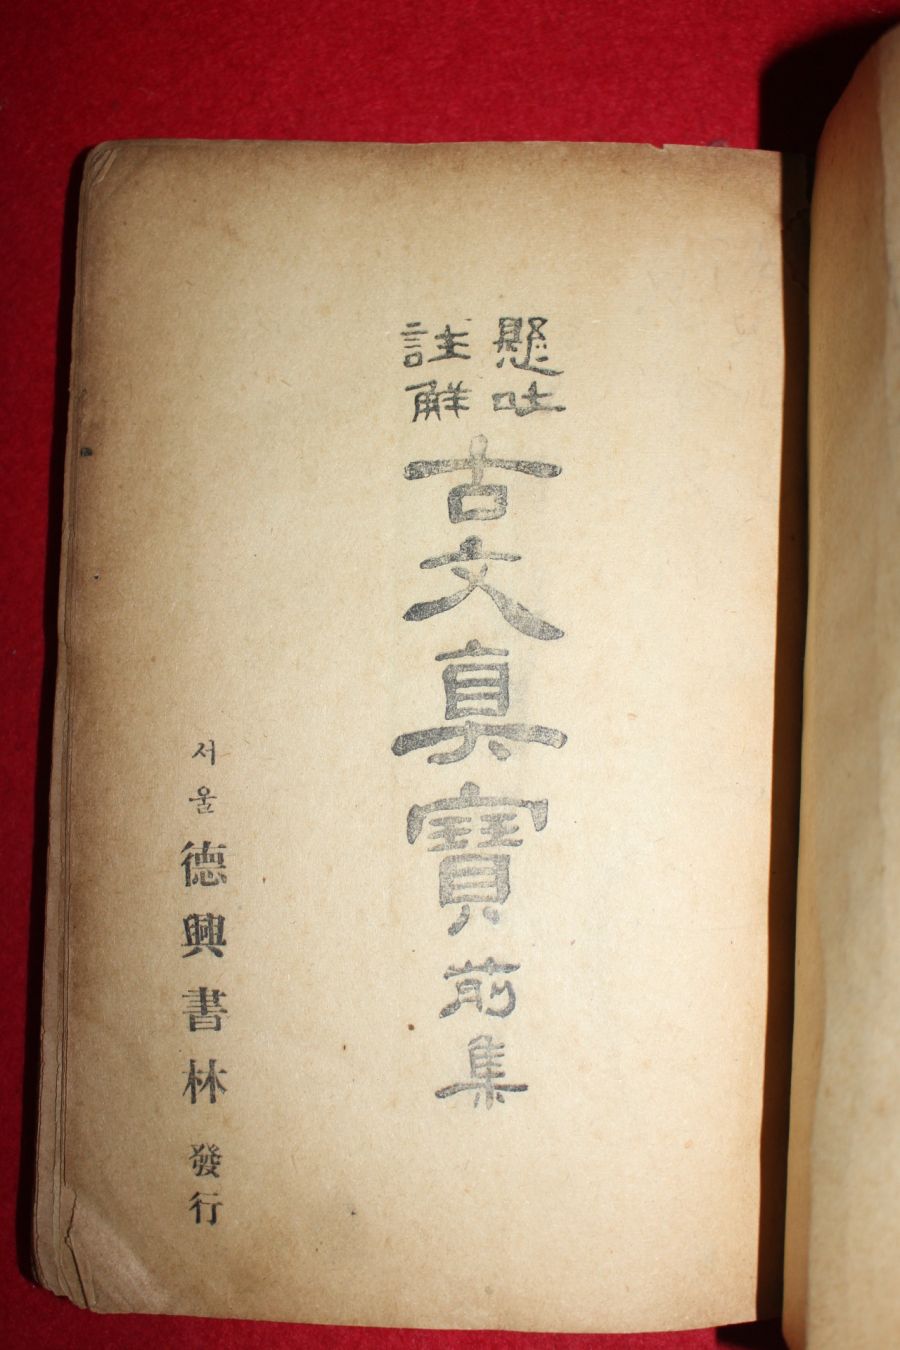 懸吐
註解
古文眞寶前集
서울 德興書林 發行